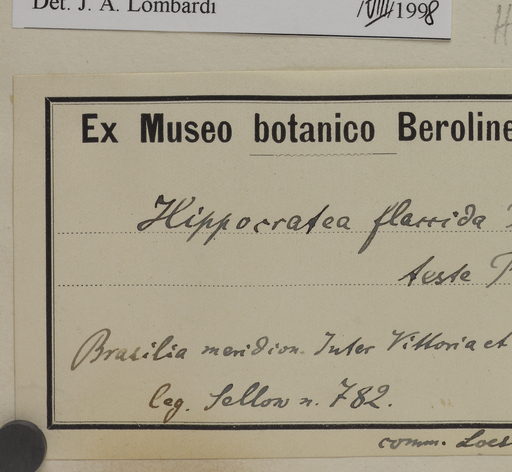 Det. J. A. Lombardi /VIII/1998
H
Ex Museo botanico Beroline
Hippocratea flaccida
teste P
Brasilia meridion. Inter Vittoria et
leg. Sellow n. 782.
comm. Loes